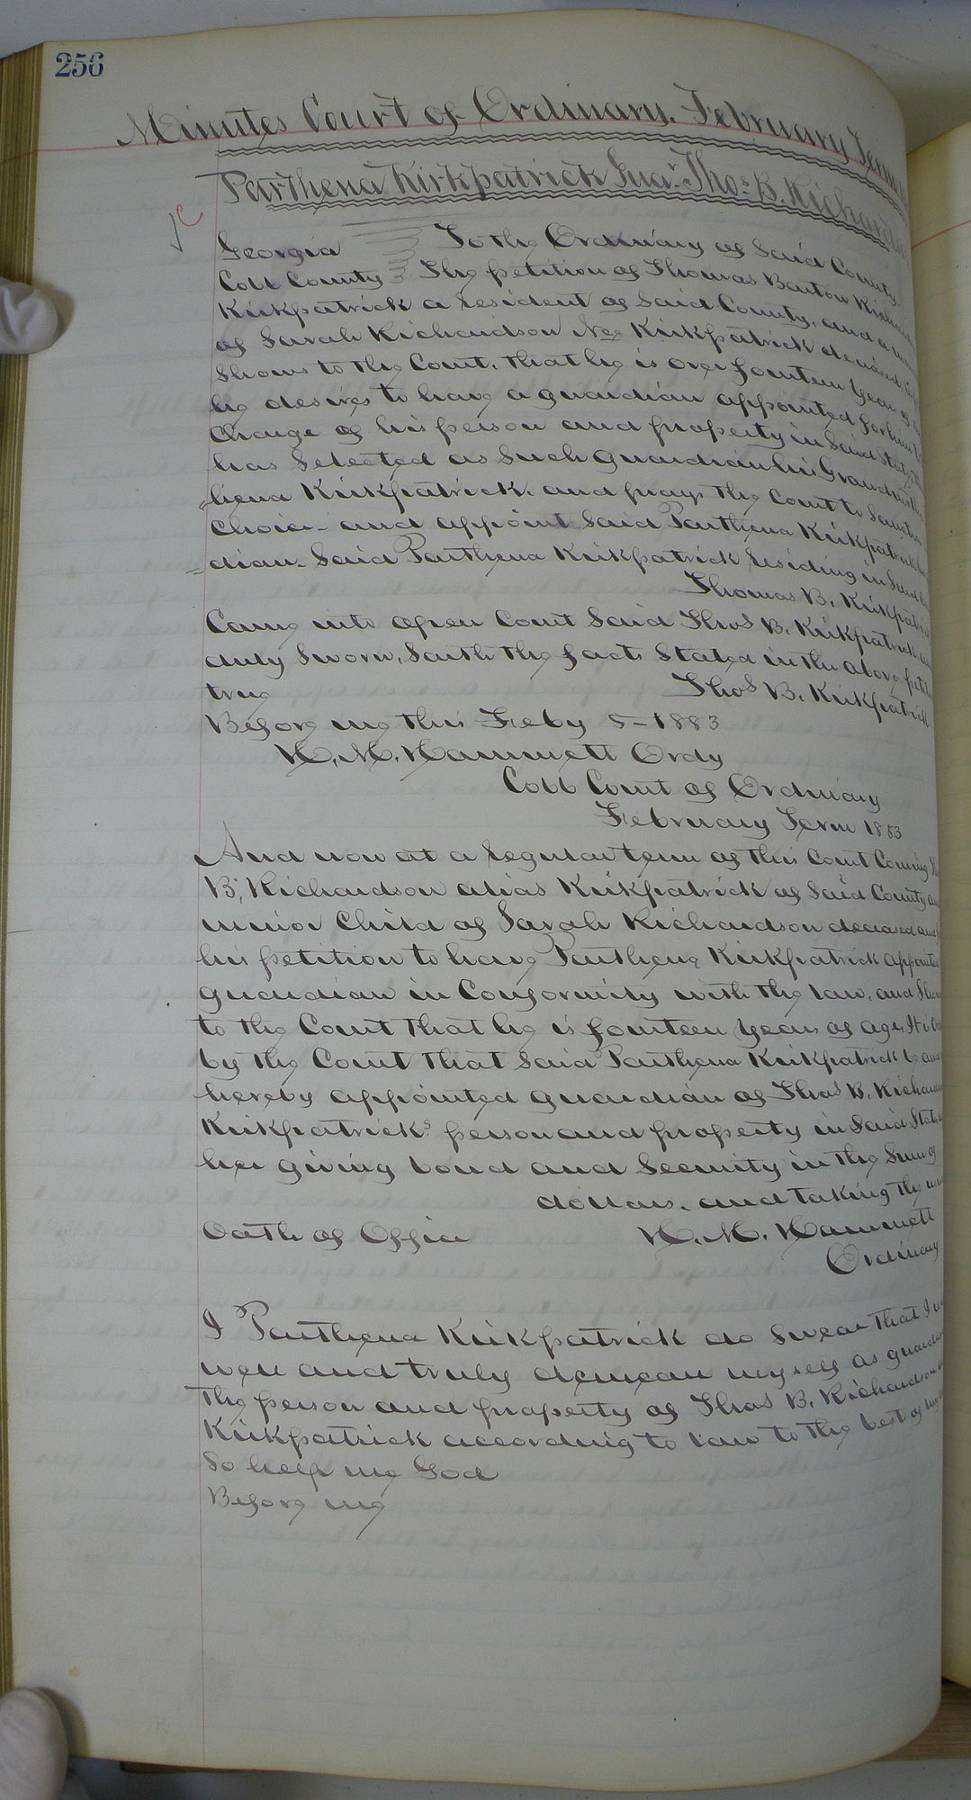 256
Minutes Court of Ordinary. February Term
Parthena Kirkpatrick Gua. Thos B. Richardson
Georgia To the Ordinary of Said County
Cobb County The petition of Thomas Barton
Kirkpatrick a resident of Said County, and a
of Sarah Richardson Nee Kirkpatrick deceased
Shows to the Court, that he is over fourteen years of
he desires to have a guardian appointed for him
Charge of his person and property in Said State
has Selected as Such guardian his Grandmother
=hena Kirkpatrick. and prays the Court to Sanction
Choice - and appoint Said Parthena Kirkpatrick
=dian. Said Parthena Kirkpatrick residing in Said
Thomas B. Kirkpatrick
Came into open Court Said Thos B. Kirkpatrick
duly Sworn, Saith the facts Stated in the above
true Thos B. Kirkpatrick
Before me this Feby 5 - 1883
H. M. Hammett Ordy
Cobb Court of Ordinary
February Term 1883
And now at a regular term of this Court Coming
B. Richardson alias Kirkpatrick of Said County
minor Child of Sarah Richardson deceased and
his petition to have Parthena Kirkpatrick appointed
guardian in Conformity with the law, and
to the Court that he is fourteen years of age. It is
by the Court that Said Parthena Kirkpatrick be and
hereby appointed guardian of Thos B. Richardson
Kirkpatricks person and property in Said State
her giving bond and Security in the Sum of
dollars. and taking the
Oath of Office H. M. Hammett
Ordinary
I Parthena Kirkpatrick do Swear that I
well and truly demean myself as guardian
the person and property of Thos B. Richardson
Kirkpatrick according to law to the best of my
So help me God
Before me